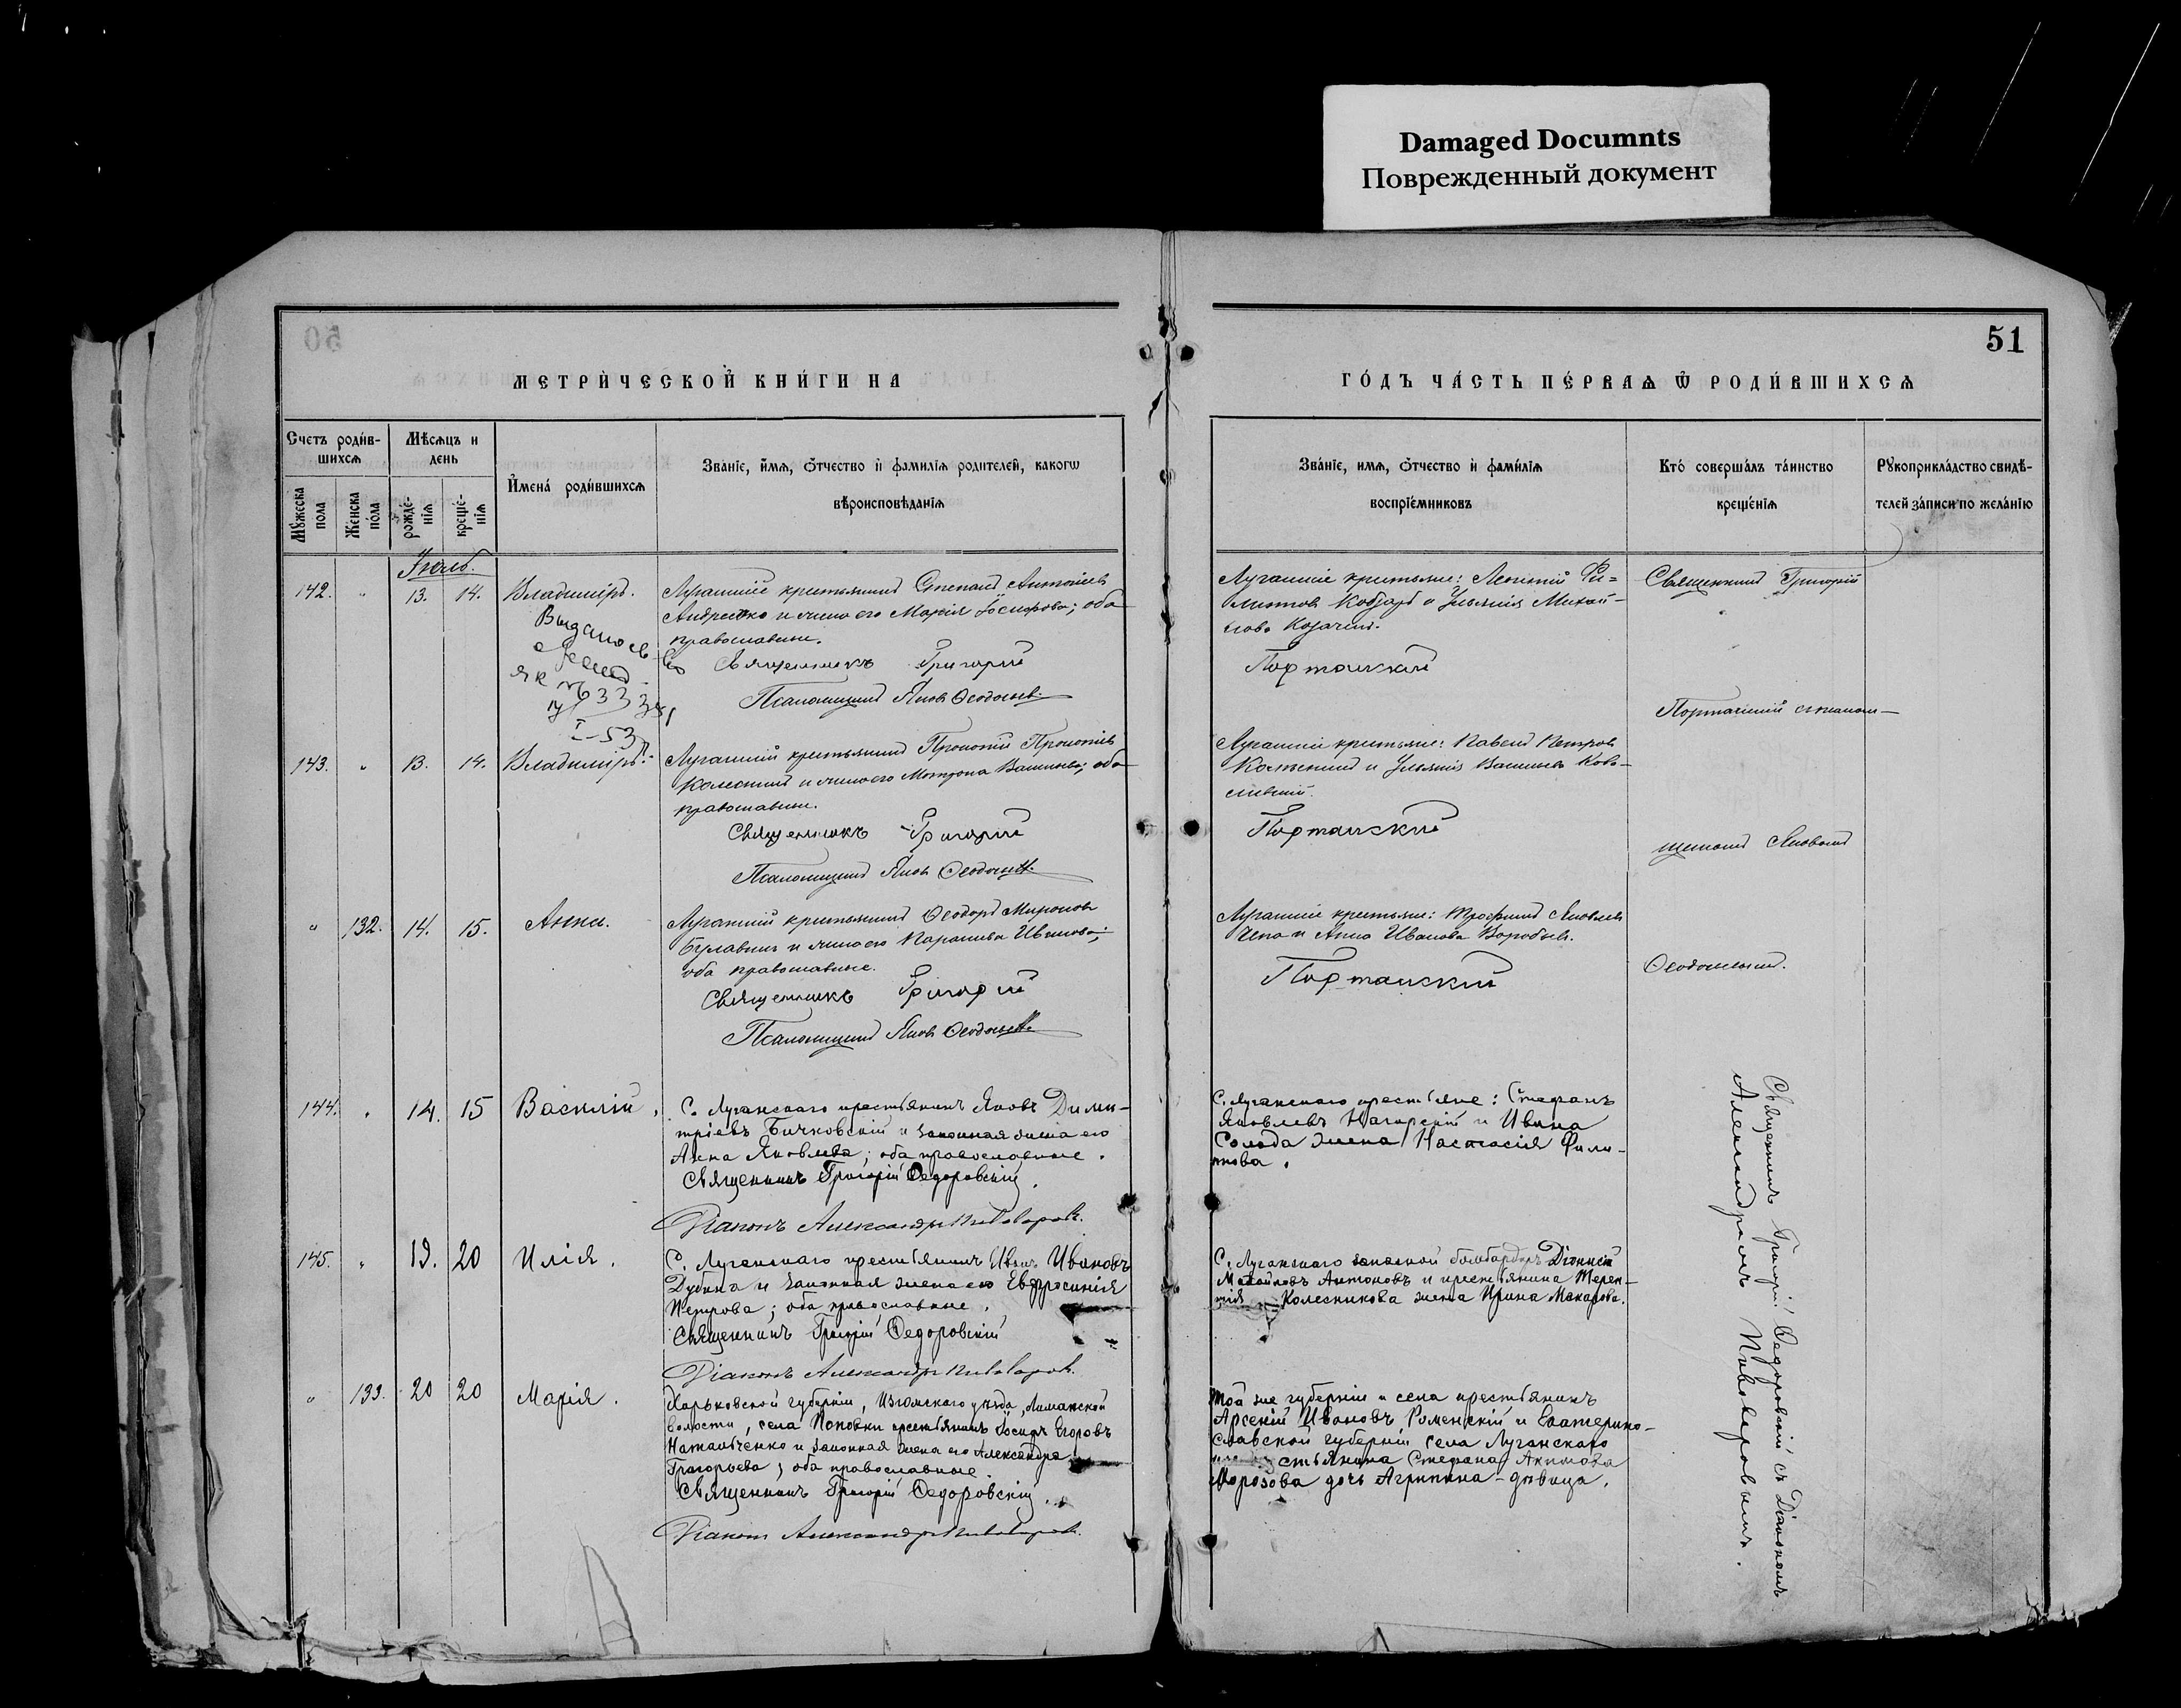 Damaged Documnts
Поврежденный документ
51
МЕТРИ́ЧЕСКОЙ КНИ́ГИ НА
ГО́ДЪ ЧА́СТЬ ПЕ́РВАѦ Ѿ РОДИ́ВШИХСѦ
Счетъ роди́в-
шихсѧ
Мѣсѧцъ и
день
Мꙋжеска
пола
Же́нска
по́ла
рожде́-
нїѧ
креще́-
нїѧ
И҆мена́ роди́вшихсѧ
Зва́нїе, и҆́мѧ, ѻ҆́тчество и҆ фамилїѧ родителей, какогѡ
вѣроисповѣданїѧ
Зва́нїе, имѧ, ѻ҆́тчество и҆ фами́лїѧ
воспрїе́мниковъ
Кто́ соверша́лъ та́инство
креще́нїѧ
Рꙋкоприкла́дство свидѣ́-
телей за́писи по жела́нїю
Іюль.
142. " 13. 14. Владиміръ.
Луганскій крестьянинъ Степанъ Антоніевъ
и жена его Марія Іосифова; оба
православные.
Священникъ Григорій
Псаломщикъ Яковъ Ѳеодосьевъ.
Луганскіе крестьяне: Леонтій Фи-
липповъ Кобзарь и Ульянія Михай-
лова
Портанскій
Священникъ Григорій
Портанскій съ псалом-
щикомъ Яковомъ
Ѳеодосьевымъ.
143. " 13. 14. Владиміръ.
Луганскій крестьянинъ Прокопій Прокопіевъ
и жена его Матрона Васильева; оба
православные.
Священникъ Григорій
Псаломщикъ Яковъ Ѳеодосьевъ.
Луганскіе крестьяне: Павелъ Петровъ
и Ульянія Васильева Кова-
Портанскій
" 132. 14. 15. Анна.
Луганскій крестьянинъ Ѳеодоръ Мироновъ
Булавинъ и жена его Параскева Иванова;
оба православные.
Священникъ Григорій
Псаломщикъ Яковъ Ѳеодосьевъ.
Луганскіе крестьяне: Трофимъ Яковлевъ
и Анна Иванова Воробьева.
Портанскій
144. " 14. 15 Василій.
С. Луганскаго крестьянинъ Яковъ Дими-
тріевъ Бичковскій и законная жена его
Анна Яковлева; оба православные.
Священникъ Григорій Ѳедоровскій.
Діаконъ Александръ Пивоваровъ.
С. Луганскаго крестьяне: Стефанъ
Яковлевъ Нагорскій и Ивана
Солода жена Настасія Фили-
пова.
Священникъ Григорій Ѳедоровскій съ Діакономъ
Александромъ Пивоваровымъ.
145. " 19. 20 Илія.
С. Луганскаго крестьянинъ Иванъ Ивановъ
Дубина и законная жена его Евфросинія
Петрова; оба православные.
Священникъ Григорій Ѳедоровскій
Діаконъ Александръ Пивоваровъ.
С. Луганскаго запасной бомбардиръ Діонисій
Антоновъ и крестьянина Терен-
тія Колесникова жена Ирина Макарова.
" 133. 20 20 Марія.
Харьковской губерніи, Изюмскаго уѣзда, Лиманской
волости, села Поповки крестьянинъ Іосифъ Егоровъ
Натальченко и законная жена его Александра
Григорьева; оба православные.
Священникъ Григорій Ѳедоровскій.
Діаконъ Александръ Пивоваровъ.
Той же губерніи и села крестьянинъ
Арсеній Ивановъ Роменскій и Екатерино-
славской губерніи села Луганскаго
крестьянина Стефана Акимова
Морозова дочь Агрипина - дѣвица.